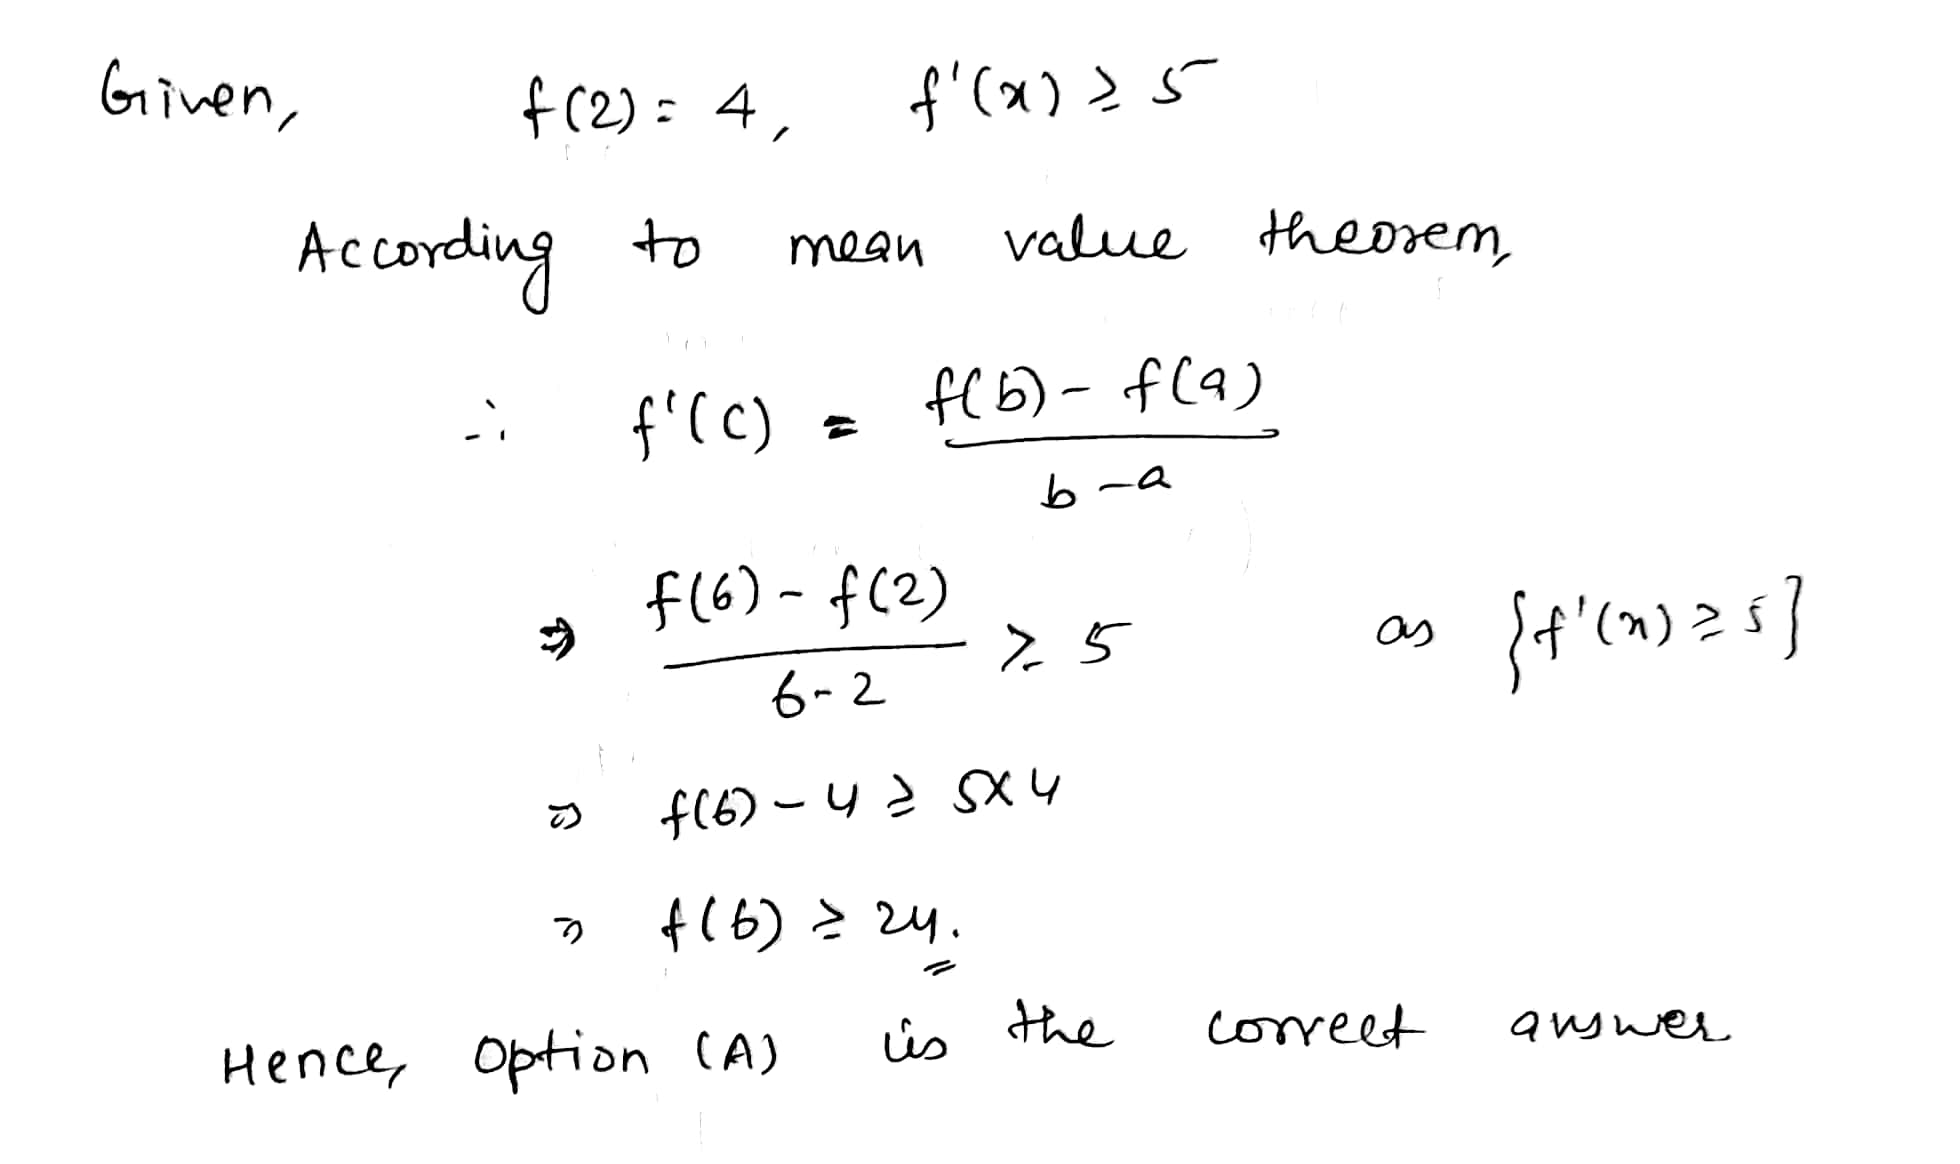 Given, f(2) = 4, f'(x) ≥ 5
According to mean value theorem,
∴ f'(c) = f(b) - f(a)
b - a
⇒ f(6) - f(2) ≥ 5 as {f'(x) ≥ 5}
6 - 2
⇒ f(6) - 4 ≥ 5 × 4
⇒ f(6) ≥ 24.
Hence, Option (A) is the correct answer